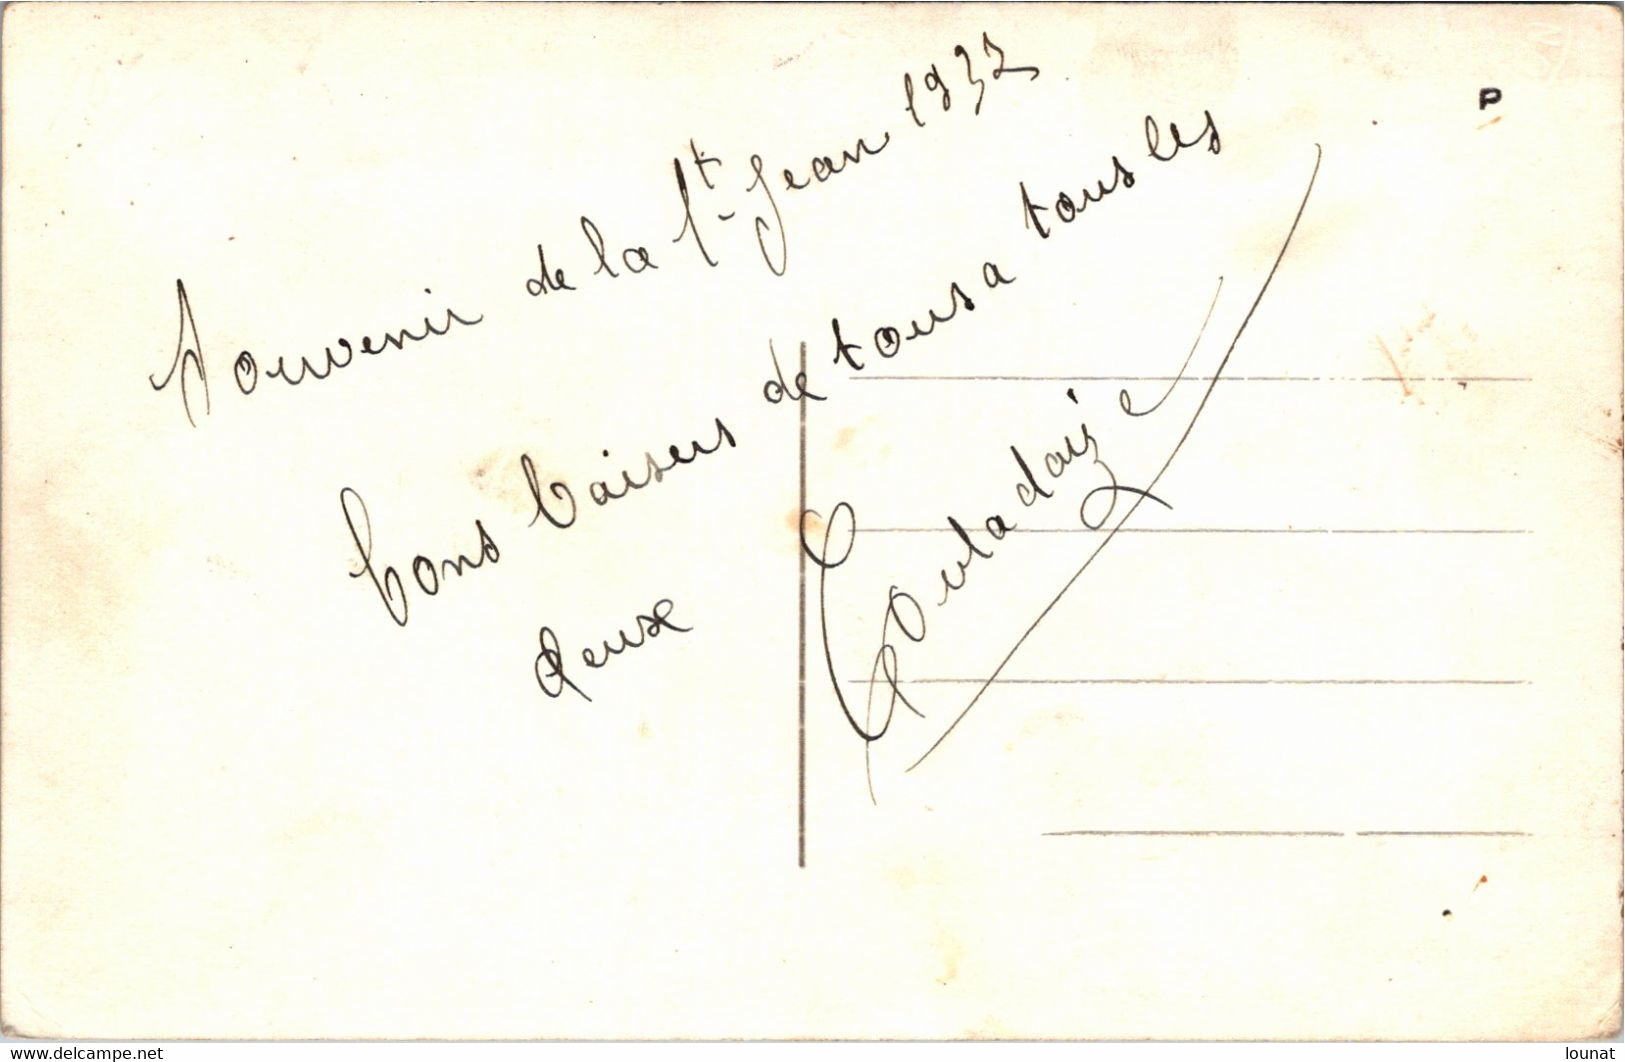 Souvenir de la St-Jean 1932
bons baisers de tous a tous les
deux
Couladaize
P
www.delcampe.net
lounat